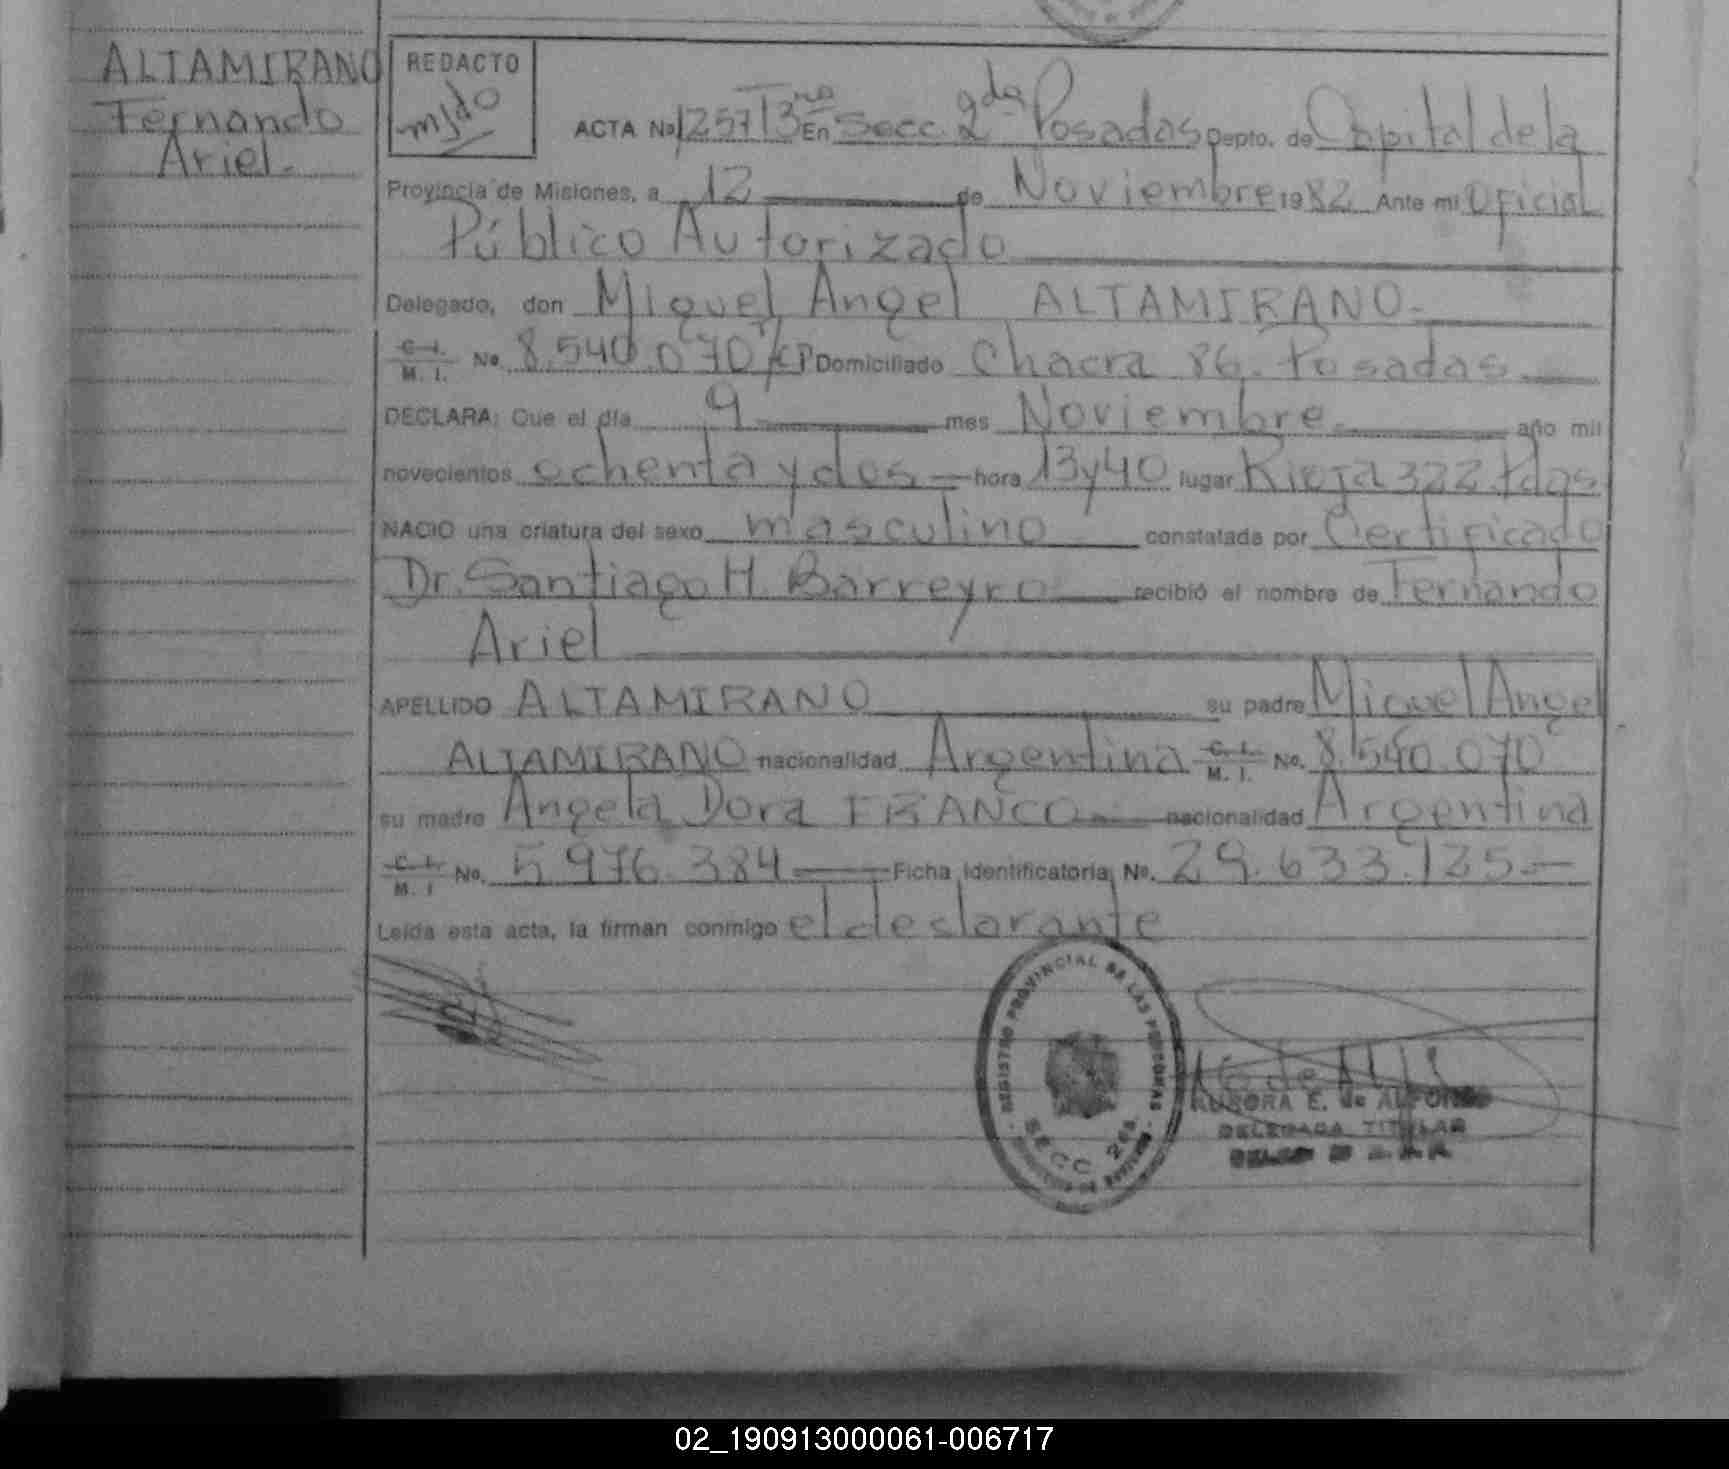 ALTAMIRANO
Fernando
Ariel.
REDACTO
ACTA No 1257 T 3ro En Secc. 2da Posadas Depto. de Capital de la
Provincia de Misiones, a 12 de Noviembre 1982 Ante mi Oficial
Público Autorizado
Delegado, don Miguel Angel ALTAMIRANO.
C. I. M. I. No. 8.540.070 Domiciliado Chacra 86. Posadas
DECLARA: Que el día 9 mes Noviembre año mil
novecientos ochenta y dos hora 13 y 40 lugar Rioja 322 Pdas
NACIO una criatura del sexo masculino constatada por Certificado
Dr. Santiago H. Barreyro recibió el nombre de Fernando
Ariel
APELLIDO ALTAMIRANO su padre Miguel Angel
ALTAMIRANO nacionalidad Argentina C. I. M. I. No. 8.540.070
su madre Angela Dora FRANCO nacionalidad Argentina
C. I. M. I No. 5.976.384 Ficha Identificatoria No. 29.633.135
Leída esta acta, la firman conmigo el declarante
REGISTRO PROVINCIAL DE LAS PERSONAS
SECC. 2da.
AURORA E. de ALFONSO
DELEGADA TITULAR
02_190913000061-006717